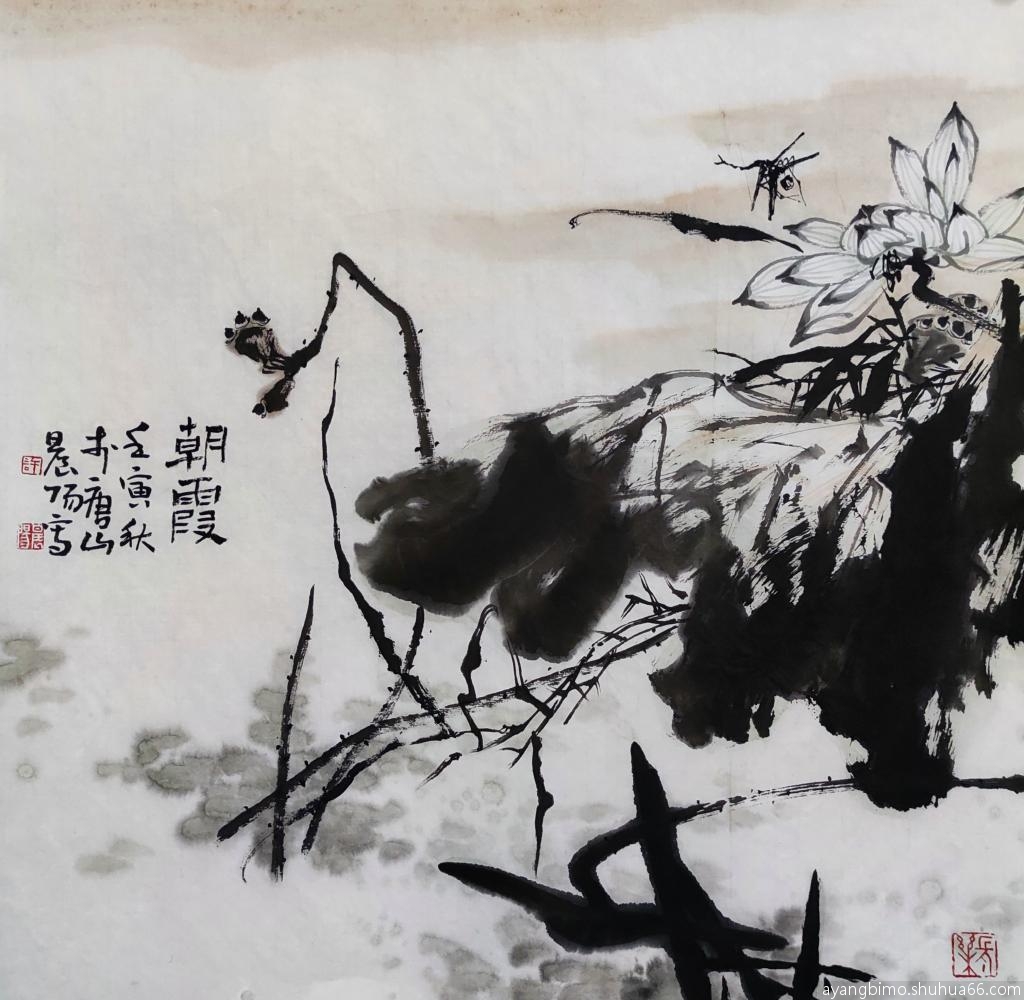 朝霞
壬寅秋
于唐山
晨阳写
ayangbimo.shuhua66.com